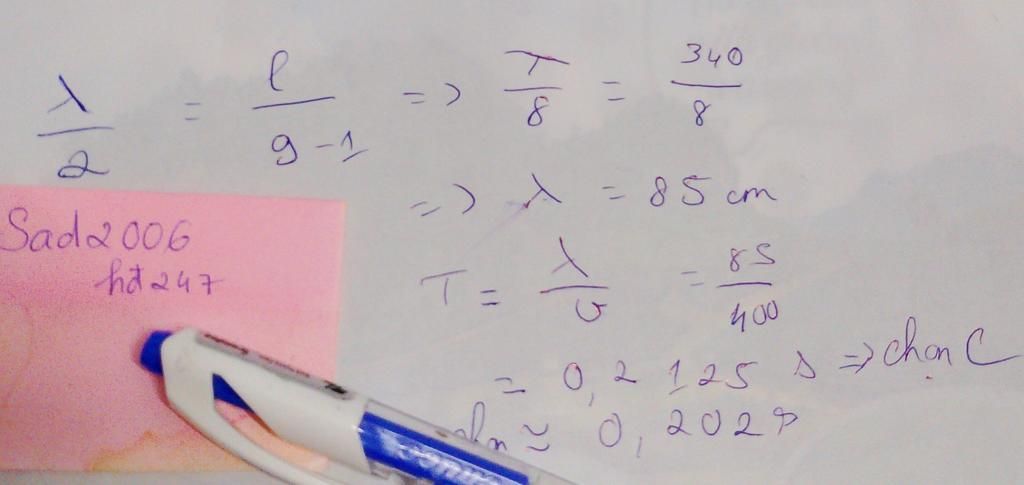 λ/2 = l/9-1 => λ/8 = 340/8
=> λ = 85 cm
T = λ/v = 85/400
= 0,2125 s => chọn C
≈ 0,202s
Sad2006
hd247